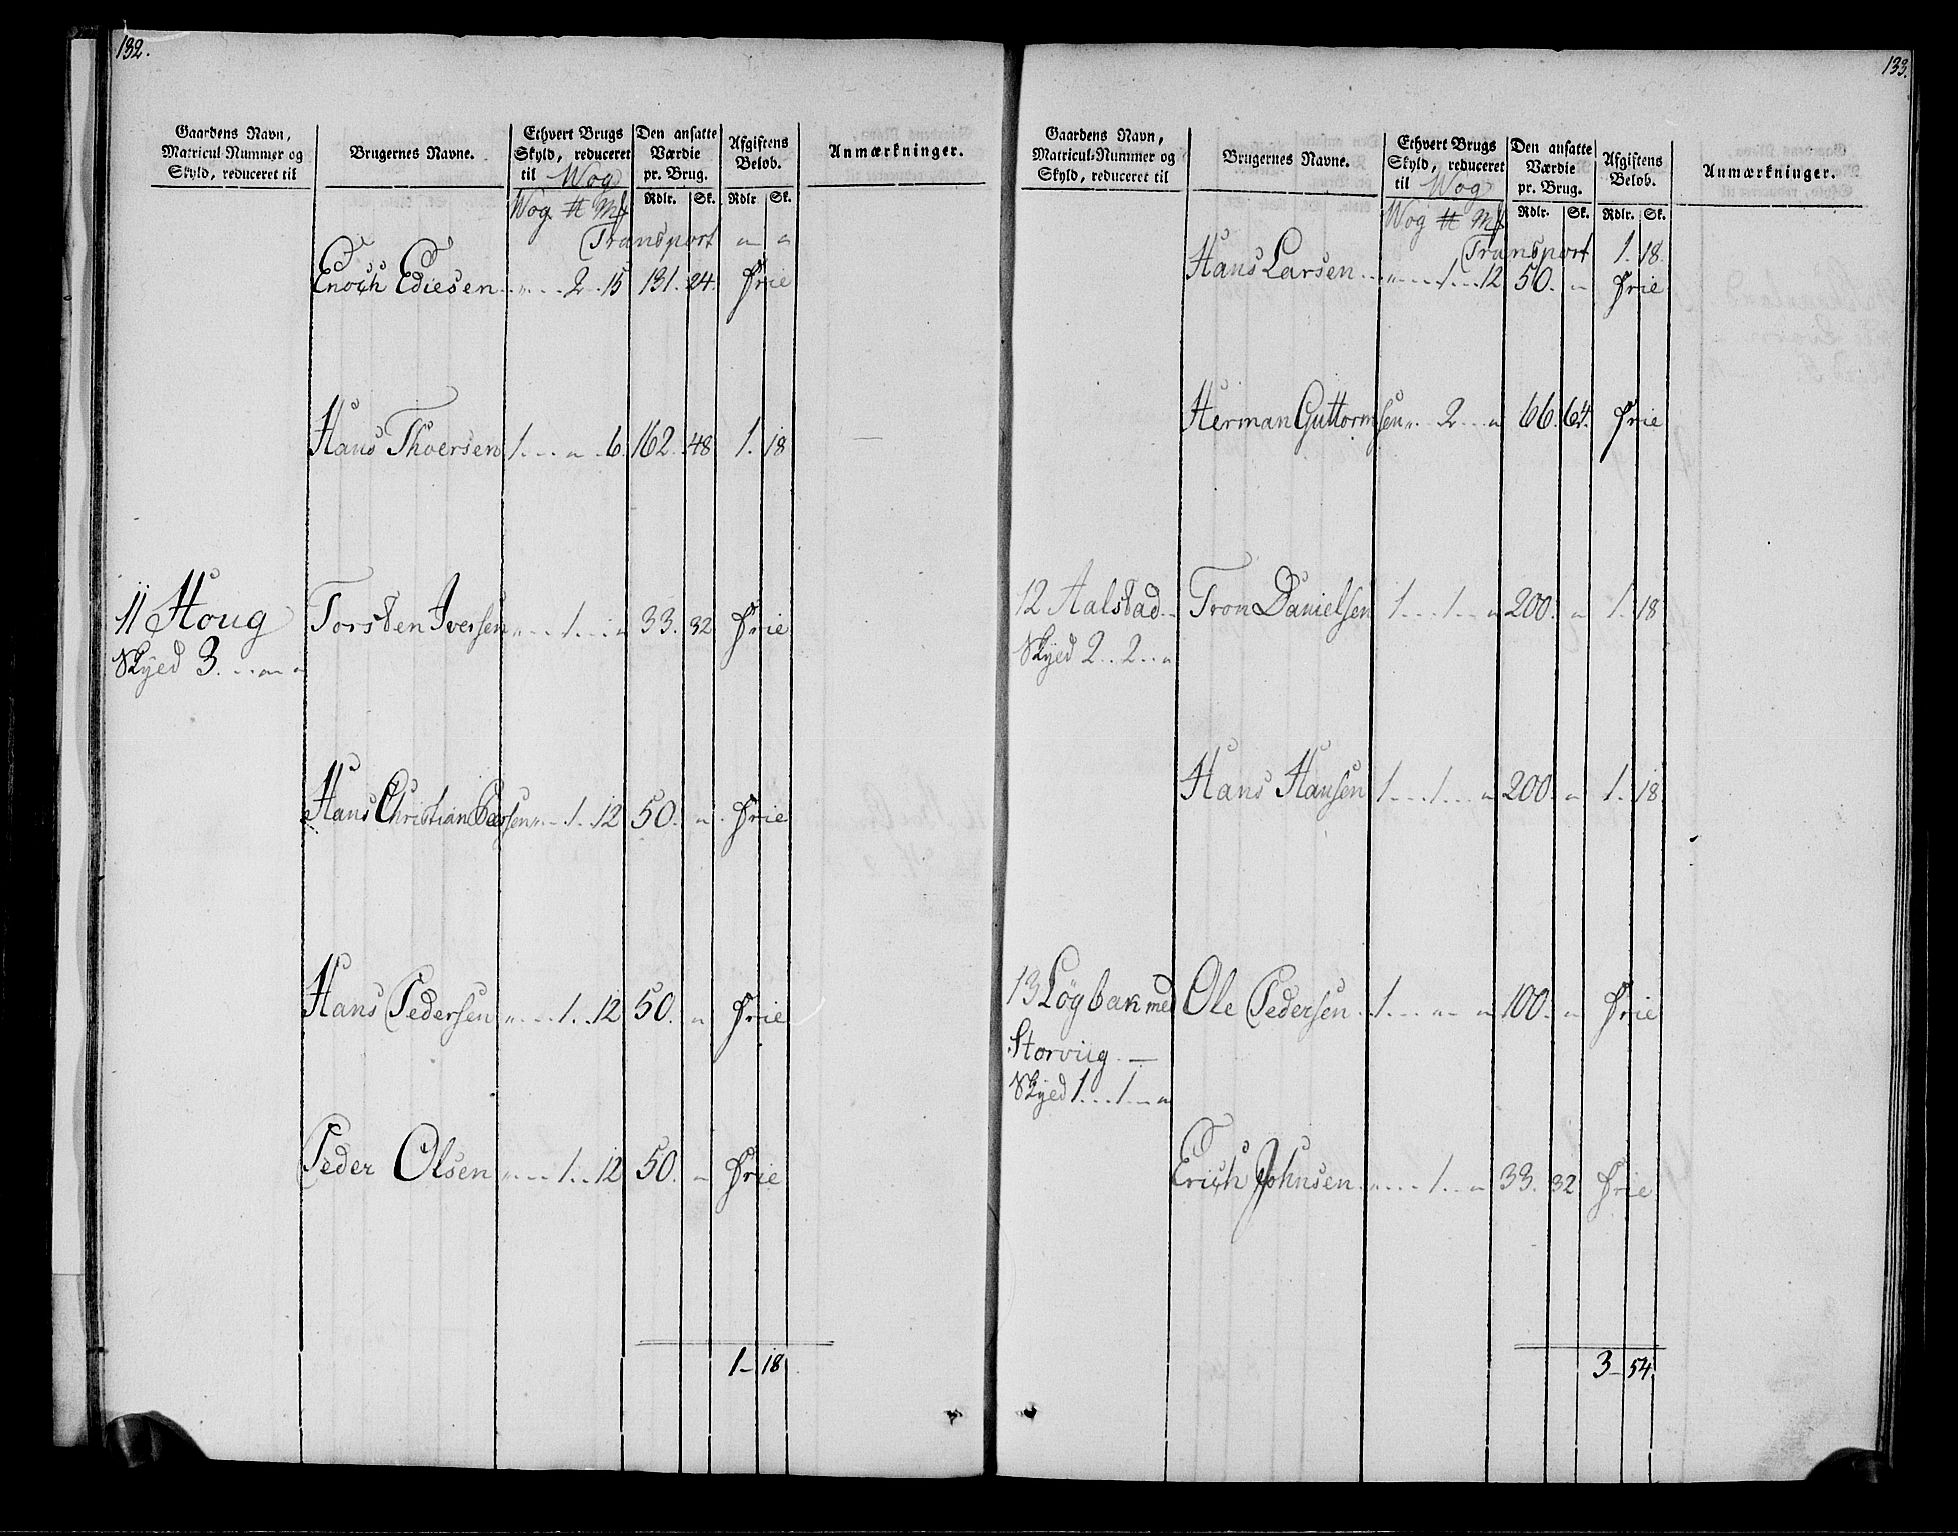 132.
Gaardens Navn, Matricul-Nummer og Skyld, reduceret til | Brugernes Navne. | Ethvert Brugs Skyld, reduceret til Wog | Den ansatte Værdie pr. Brug. | Afgiftens Beløb. | Anmærkninger.
Wog ℔ Mk | Rdlr. | Sk. | Rdlr. | Sk.
Transport " "
Enoch Ediesen " 2 15 131. 24. Frie
Hans Thoersen 1 " 6. 162. 48 1. 18
11 Houg Torsten Iversen " 1 " 33. 32 Frie
Skyed 3. " "
Hans Christian Pedersen " 1. 12 50. " Frie
Hans Pedersen " 1. 12 50. " Frie
Peder Olsen " 1. 12 50. " Frie
1 - 18
133.
Gaardens Navn, Matricul-Nummer og Skyld, reduceret til | Brugernes Navne. | Ethvert Brugs Skyld, reduceret til Wog | Den ansatte Værdie pr. Brug. | Afgiftens Beløb. | Anmærkninger.
Wog ℔ Mk | Rdlr. | Sk. | Rdlr. | Sk.
Transport 1. 18.
Hans Larsen " 1 12 50. " Frie
Herman Guttormsen " 2 " 66. 64. Frie
12 Aalstad Tron Danielsen 1 1 " 200. " 1. 18
Skyed 2 2 "
Hans Hansen 1 1 " 200. " 1. 18
13 Löybak med Ole Pedersen 1 " " 100. " Frie
Storviig
Skyed 1 1 "
Erich Johnsen " 1 " 33. 32 Frie
3 - 54.